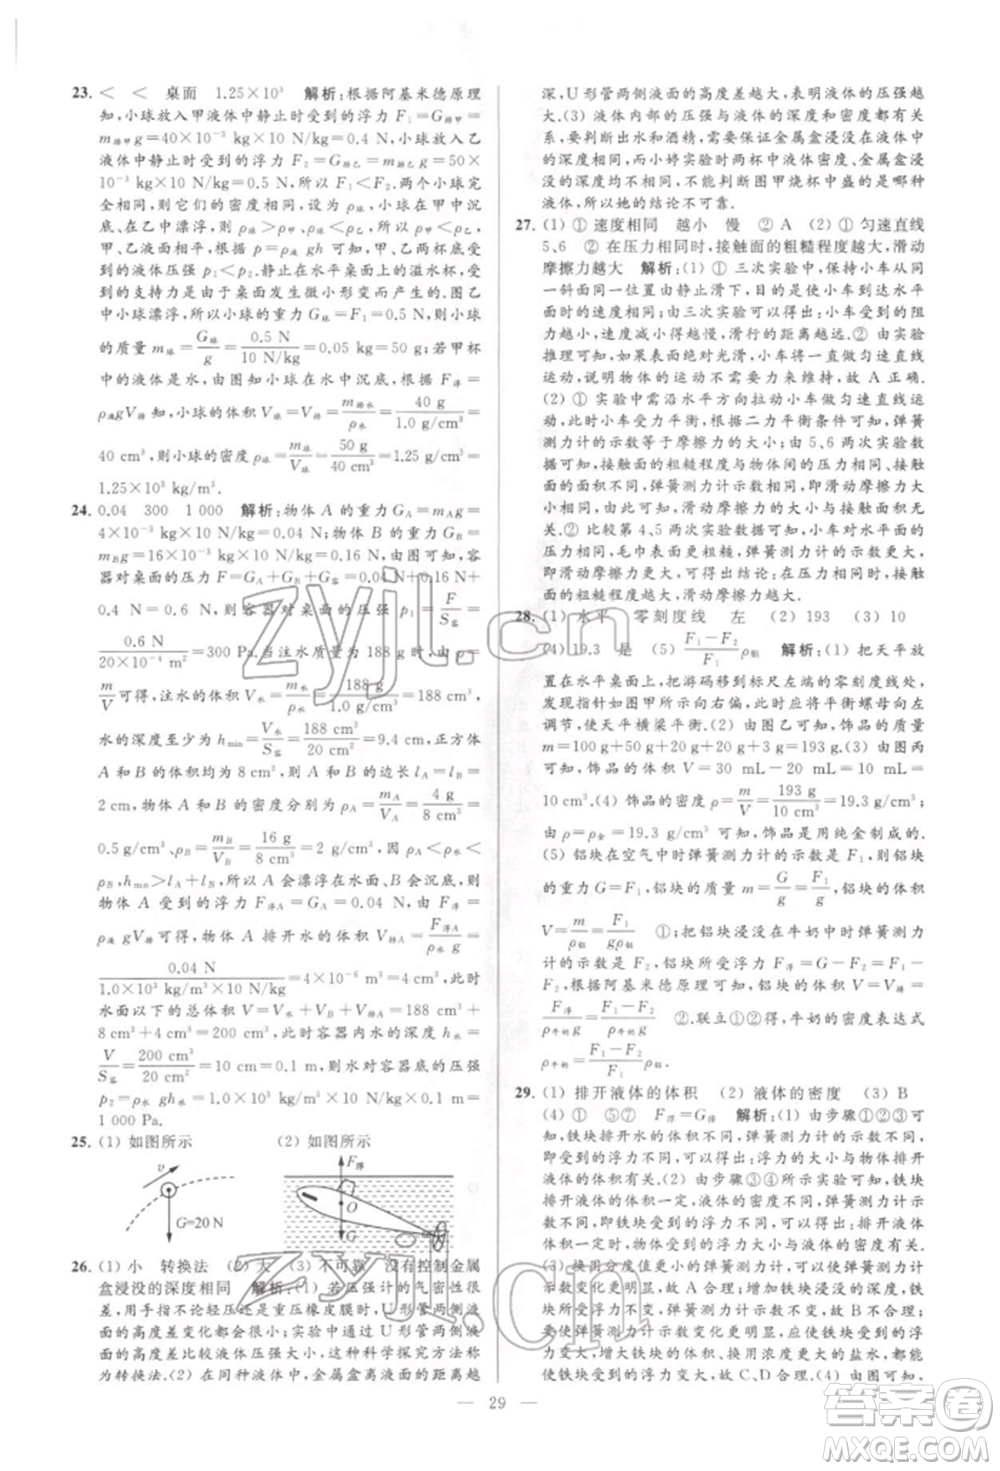 23. ＜ ＜ 桌面 1.25×10³ 解析:根据阿基米德原理
知,小球放入甲液体中静止时受到的浮力 F₁=G排甲=
m排甲g=40×10⁻³ kg×10 N/kg=0.4 N,小球放入乙
液体中静止时受到的浮力 F₂=G排乙=m排乙g=50×
10⁻³ kg×10 N/kg=0.5 N,所以 F₁<F₂.两个小球
完全相同,则它们的密度相同,由图知,小球在甲中沉
底、在乙中漂浮,则 ρ甲<ρ球,ρ球<ρ乙,所以 ρ甲<ρ乙,
甲、乙液面相平,根据 p=ρ液gh 可知,甲、乙两杯底受到
的液体压强 p₁<p₂.静止在水平桌面上的溢水杯,受到
的支持力是由于桌面发生微小形变而产生的.图乙
中小球漂浮,所以小球的重力 G球=F₁=0.5 N,则小球
的质量 m球=G球/g=0.5 N/10 N/kg=0.05 kg=50 g;若甲杯
中的液体是水,由图知小球在水中沉底,根据 F浮=
ρ液gV排知,小球的体积 V球=V排=m排水/ρ水=40 g/1.0 g/cm³=
40 cm³,小球的密度 ρ球=m球/V球=50 g/40 cm³=1.25 g/cm³=
1.25×10³ kg/m³.
24. 0.04 300 1 000 解析:物体 A 的重力 G_A=m_A g=
4×10⁻³ kg×10 N/kg=0.04 N;物体 B 的重力 G_B=
m_B g=16×10⁻³ kg×10 N/kg=0.16 N,图甲中,容
器对桌面的压力 F=G_A+G_B+G容=0.04 N+0.16 N+
0.4 N=0.6 N,则容器对桌面的压强 p₁=F/S容=
0.6 N/20×10⁻⁴ m²=300 Pa.当注水质量为 188 g 时,由 ρ=
m/V可得,注水的体积 V水=m水/ρ水=188 g/1.0 g/cm³=188 cm³,
水的深度至少为 h min=V水/S容=188 cm³/20 cm²=9.4 cm,正方体
A 和 B 的体积均为 8 cm³,则 A 和 B 的边长 l_A=l_B=
2 cm,物体 A 和 B 的密度分别为 ρ_A=m_A/V_A=4 g/8 cm³=
0.5 g/cm³,ρ_B=m_B/V_B=16 g/8 cm³=2 g/cm³.因为 ρ_A<ρ水<
ρ_B,h min>l_A+l_B,所以 A 会漂浮在水面、B 会沉底,则
物体 A 受到的浮力 F浮A=G_A=0.04 N,由 F浮=
ρ水gV排可得,物体 A 排开水的体积 V排A=F浮A/ρ水g=
0.04 N/1.0×10³ kg/m³×10 N/kg=4×10⁻⁶ m³=4 cm³,此时
水面以下的总体积 V=V水+V排A+V_B=188 cm³+
8 cm³+4 cm³=200 cm³,此时容器内水的深度 h水=
V/S容=200 cm³/20 cm²=10 cm=0.1 m,则水对容器底的压强
p₂=ρ水gh水=1.0×10³ kg/m³×10 N/kg×0.1 m=
1 000 Pa.
25. (1) 如图所示 (2) 如图所示
v
G=20 N
F浮
O
G
26. (1) 小 转换法 (2) 大 (3) 不可靠 没有控制金属
盒浸没的深度相同 解析:(1) 若压强计的气密性很
差,用手指不论轻压还是重压橡皮膜时,U 形管两侧液面
的高度差变化都会很小;实验中通过 U 形管两侧液面
的高度差来反映液体压强大小,这种科学探究方法称
为转换法.(2) 在同种液体中,金属盒离液面的距离越
深,U 形管两侧液面的高度差越大,表明液体的压强越
大.(3) 液体内部的压强与液体的深度和密度有关
系,要判断出水和酒精,需要保证金属盒浸没在液体中
的深度相同,而小婷实验时两杯中液体密度、金属盒浸
没的深度均不相同,不能判断图甲烧杯中盛的是哪种
液体,所以她的结论不可靠.
27. (1) ① 速度相同 越小 慢 ② A (2) ① 匀速直线
5、6 ② 在压力相同时,接触面的粗糙程度越大,滑动
摩擦力越大 解析:(1) ① 三次实验中,保持小车从同
一斜面同一高度由静止滑下,目的是使小车到达水平
面时的速度相同;由三次实验可以得出:小车受到的阻
力越小,速度减小得越慢,滑行的距离越远.② 由实验
推理可知,如果表面绝对光滑,小车将一直做匀速直线
运动,这说明物体的运动不需要力来维持,故 A 正确.
(2) ① 实验中需沿水平方向拉动小车做匀速直线运
动,此时小车受力平衡,根据二力平衡条件可知,弹簧
测力计的示数等于摩擦力的大小;由 5、6 两次实验数
据可知,接触面的粗糙程度与物体间的压力均相同,但
速度不同,而弹簧测力计示数相同,即滑动摩擦力大小
相同,由此可知,滑动摩擦力的大小与速度大小无
关.② 比较第 4、5 两次实验数据可知,小车对水平面的
压力相同,毛巾表面更粗糙,弹簧测力计的示数更大,
即滑动摩擦力更大,由此可得出结论:在压力相同时,接
触面的粗糙程度越大,滑动摩擦力越大.
28. (1) 水平 零刻度线 左 (2) 193 (3) 10
(4) 19.3 是 (5) F₁−F₂/F₁ ρ铝 解析:(1) 把天平放
置在水平桌面上,将游码移到标尺左端的零刻度线处,
发现指针如图甲所示向右偏,此时应将平衡螺母向左
调节,使天平横梁平衡.(2) 由图乙可知,饰品的质量
m=100 g+50 g+20 g+20 g+3 g=193 g.(3) 由图丙
可知,饰品的体积 V=30 mL−20 mL=10 mL=
10 cm³.(4) 饰品的密度ρ=m/V=193 g/10 cm³=19.3 g/cm³,
由ρ=ρ金=19.3 g/cm³ 可知,饰品是用纯金制成的.
(5) 铝块在空气中时弹簧测力计的示数是 F₁,则铝块
的重力 G=F₁,铝块的质量 m=G/g=F₁/g,铝块的体积
V=m/ρ铝=F₁/ρ铝g ①;把铝块浸没在牛奶中时弹簧测力
计的示数是 F₂,铝块受到的浮力 F浮=G−F₂=F₁−
F₂,根据阿基米德原理可得,铝块的体积 V=V排=
F浮/ρ牛奶g=F₁−F₂/ρ牛奶g ②,联立①②得,牛奶的密度表达式
ρ牛奶=F₁−F₂/F₁ ρ铝.
29. (1) 排开液体的体积 (2) 液体的密度 (3) B
(4) ① ⑤⑦ F浮=G排 解析:(1) 由步骤①②③可
知,铁块排开水的体积不同,弹簧测力计的示数不同,
即铁块受到的浮力不同,说明浮力大小与物体排开
液体的体积有关.(2) 由步骤③④可知,铁块
排开液体的体积一定,液体的密度不同,弹簧测力计
的示数不同,即铁块受到的浮力不同,说明在排开液体
体积一定时,浮力大小与液体的密度有关.
(3) 换用分度值更小的弹簧测力计,不能使弹簧测力计
示数变化更明显,故 A 不符合题意;